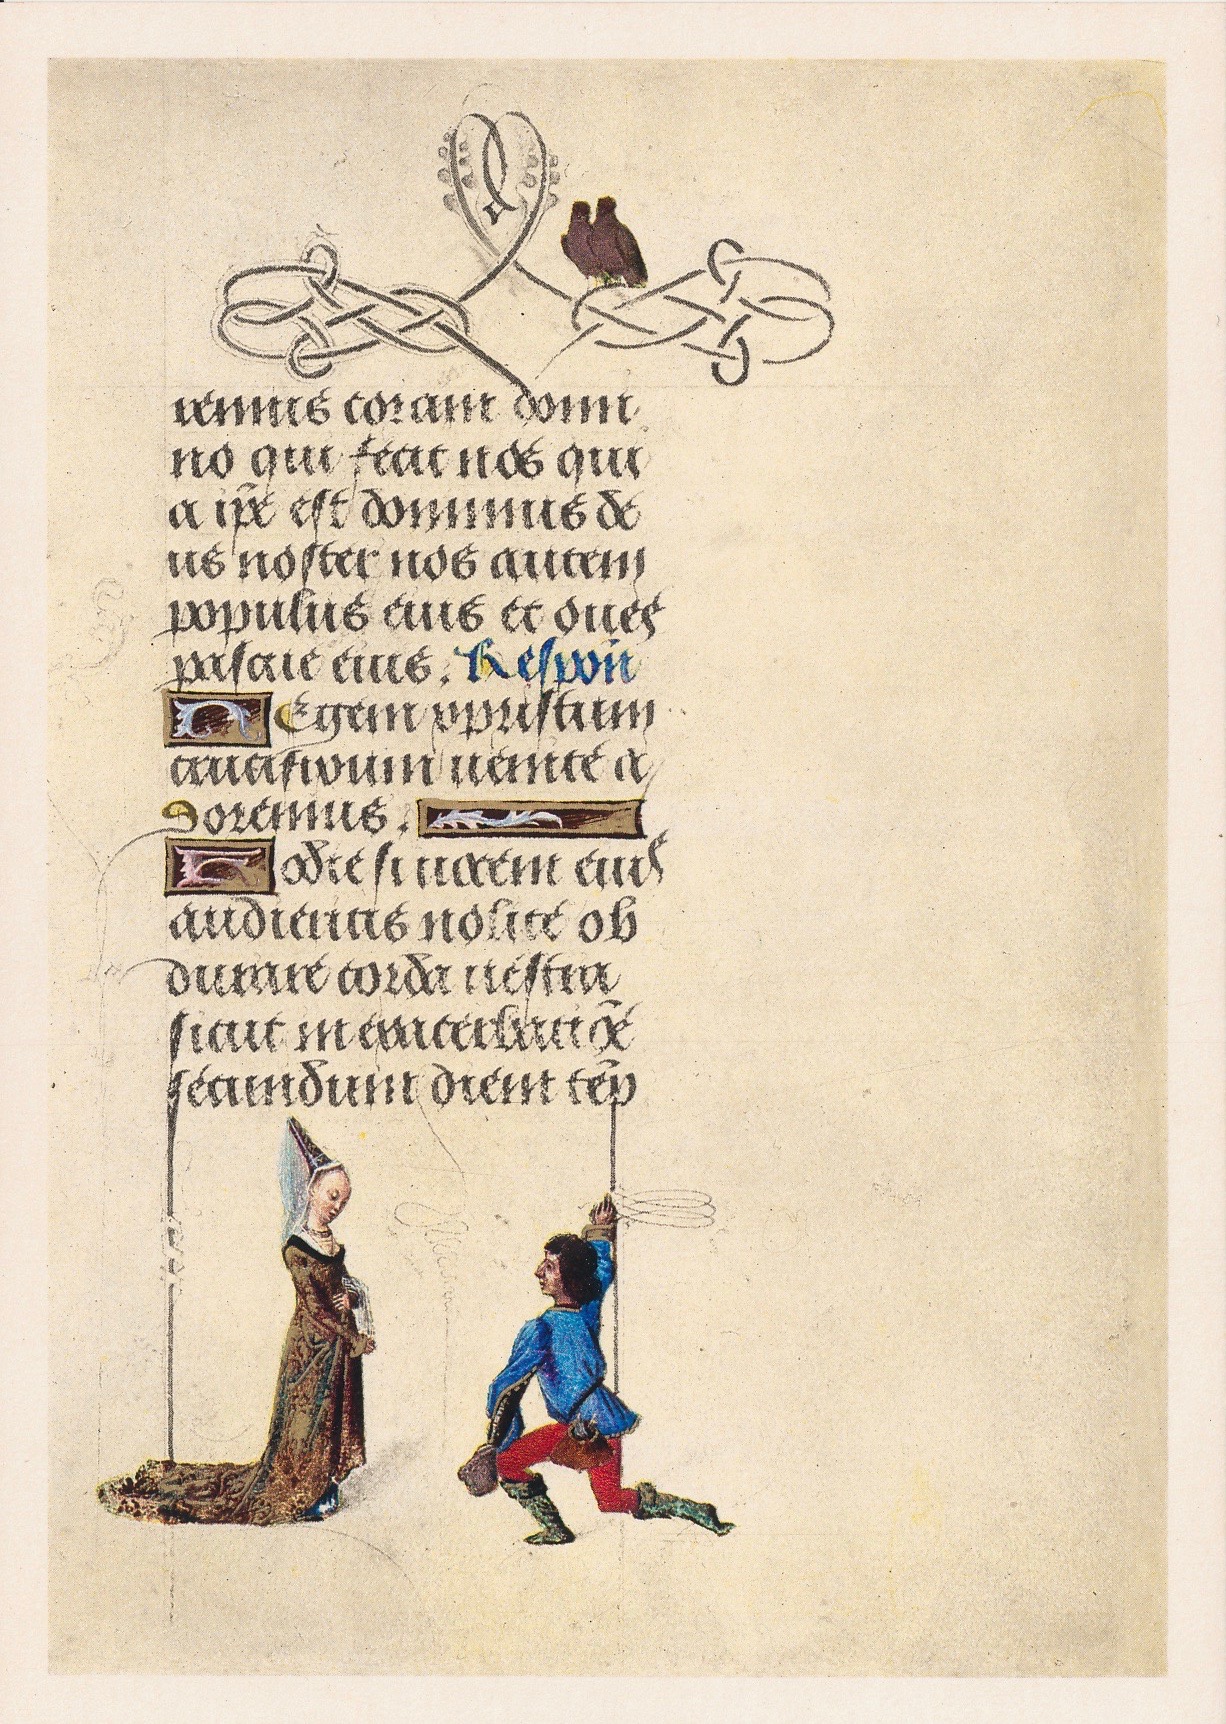 remus coram domi
no qui fecit nos qui
a ip̃e est dominus de
us noster nos autem
populus eius et oues
pascue eius. Respon̄
Regem xpristum
crucifixum uenite a
doremus.
Hodie si uocem eius
audieritis nolite ob
durare corda uestra
sicut in exacerbatiõe
secundum diem tẽp